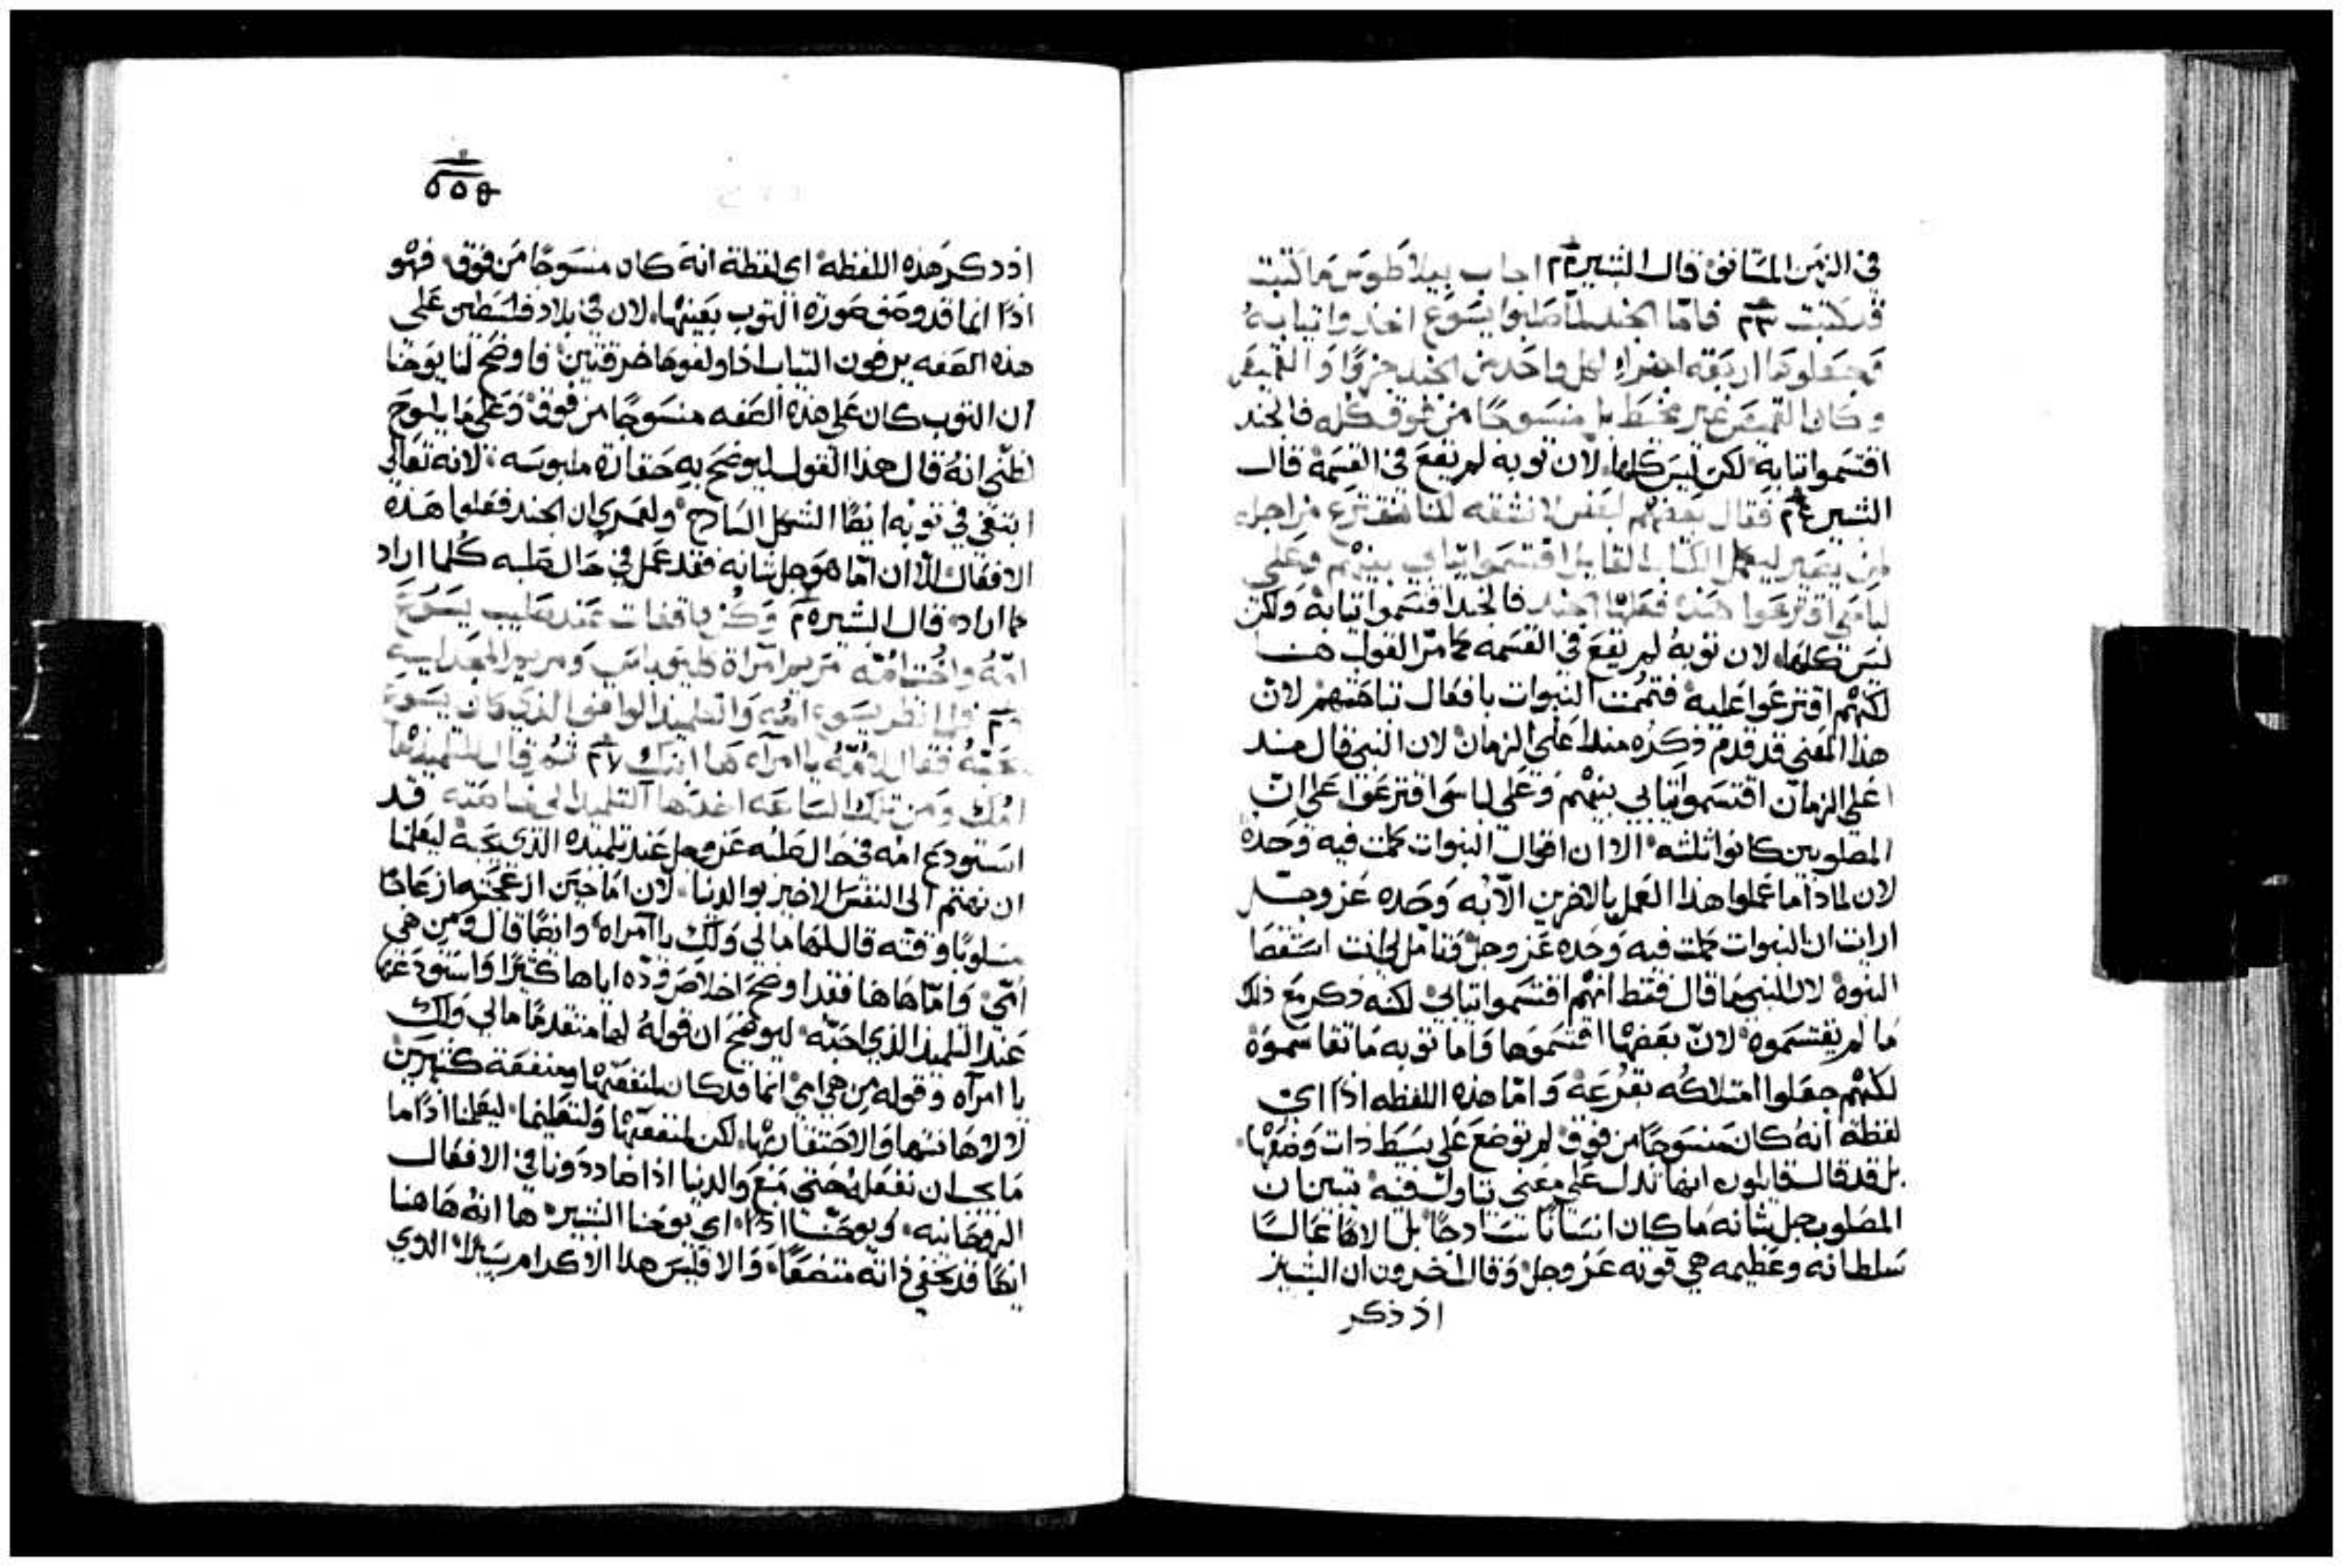 في الزمن السانف قال البشير ٢٢ اجاب بيلاطوس ما كتبت
قد كتبت ٢٣ فاما الجند لما صلبوا يسوع اخذوا ثيابه
وجعلوها اربعة اجزاء لكل واحد من الجند جزوا والقميص
وكان القميص غير مخيط بل منسوجا من فوق كله فالجند
اقتسموا ثيابه لكن ليس كلها لان ثوبه لم يقع في القسمة قال
البشير ٢٤ فقال بعضهم لبعض لا نشقه لكننا نقترع من اجله
لمن يصير ليكمل الكتاب القايل اقتسموا ثيابي بينهم وعلى
لباسي اقترعوا هذه فعلها الجند فالجند اقتسموا ثيابه ولكن
ليس كلها لان ثوبه لم يقع في القسمه كما مر القول هنا
لكنهم اقترعوا عليه فتممت النبوات بافعال تباحثهم لان
هذا المعنى قد قدم ذكره منذ اعلى الزمان لان النبي قال منذ
اعلى الزمان اقتسموا ثيابي بينهم وعلى لباسي اقترعوا على ان
المصلوبين كانوا ثلثه الا ان اقوال النبوات كملت فيه وحده
لان لماذا ما عملوا هذا العمل بالاخرين الا به وحده عز وجل
ارايت ان النبوات كملت فيه وحده عز وجل فتامل لي انت استقصا
النبوة لان النبي ما قال فقط انهم اقتسموا ثيابي لكنه ذكر مع ذلك
ما لم يقتسموه لان بعضها اقتسموها واما ثوبه ما تقاسموه
لكنهم جعلوا امتلاكه بقرعة واما هذه اللفظه اذا اي
لفظة انه كان منسوجا من فوق لم توضع على بسط ذات وضعها
بل قد قال قايلون انها تدل على معنى تبين ان
المصلوب جل شانه ما كان انسانا سادجا بل الاها عاليا
سلطانه وعظيمه هي قوته عز وجل وقال اخرون ان البشير
اذ ذكر
٥٥٩
اذ ذكر هذه اللفظه اي لفظة انه كان منسوجا من فوق فهو
اذا انما قد وصف صورة الثوب بعينها لان في بلاد فلسطين على
هذه الصفه يرصون الثياب اذا ولفوها خرقتين فاوضح لنا يوحنا
ان الثوب كان على هذه الصفه منسوجا من فوق وعلى ما يلوح
لظني انه قال هذا القول ليوضح به حقارة ملبوسه لانه تعالى
ابتغى في ثوبه ايضا الشكل السادج ولعمري ان الجند فعلوا هذه
الافعال الا ان اما هو جل شانه فقد عمل في حال صلبه كلما اراد
كما اراد قال البشير ٢٥ وكن واقفات عند صليب يسوع
امه واخت امه مريم امراة كليوباس ومريم المجدليه
٢٦ فلما نظر يسوع امه والتلميذ الواقف الذي كان يسوع
يحبه فقال لامه يا امراه ها ابنك ٢٧ ثم قال للتلميذ ها
امك ومن تلك الساعه اخذها التلميذ الى خاصته قد
استودع امه في حال صلبه عز وجل عند تلميذه الذي يحبه ليعلمنا
ان نهتم الى النفس الاخير بوالدينا لان اما حين ازعجته ازعاجا
مسلوبا وقته قال لها ما لي ولك يا امراه وايضا قال ومن هي
امي واما هاهنا فقد اوضح اخلاص وده اياها كثيرا واستودعها
عند التلميذ الذي احبه ليوضح ان قوله لها متقدما ما لي ولك
يا امراه وقوله من هي امي انما قد كان لمنفعتها ومنفعة كثيرين
لا لاهانتها والاحتقار بها لكن لمنفعتها ولتعليمها ليعلمنا اذا ما
ما يجب ان نفعله حتى مع والدينا اذا صاددونا في الافعال
الروحانيه ويوحنا اذا اي يوحنا البشير ها انه هاهنا
ايضا قد يخفي ذاته متضعا والا فليس هذا الاكرام يسيرا الذي